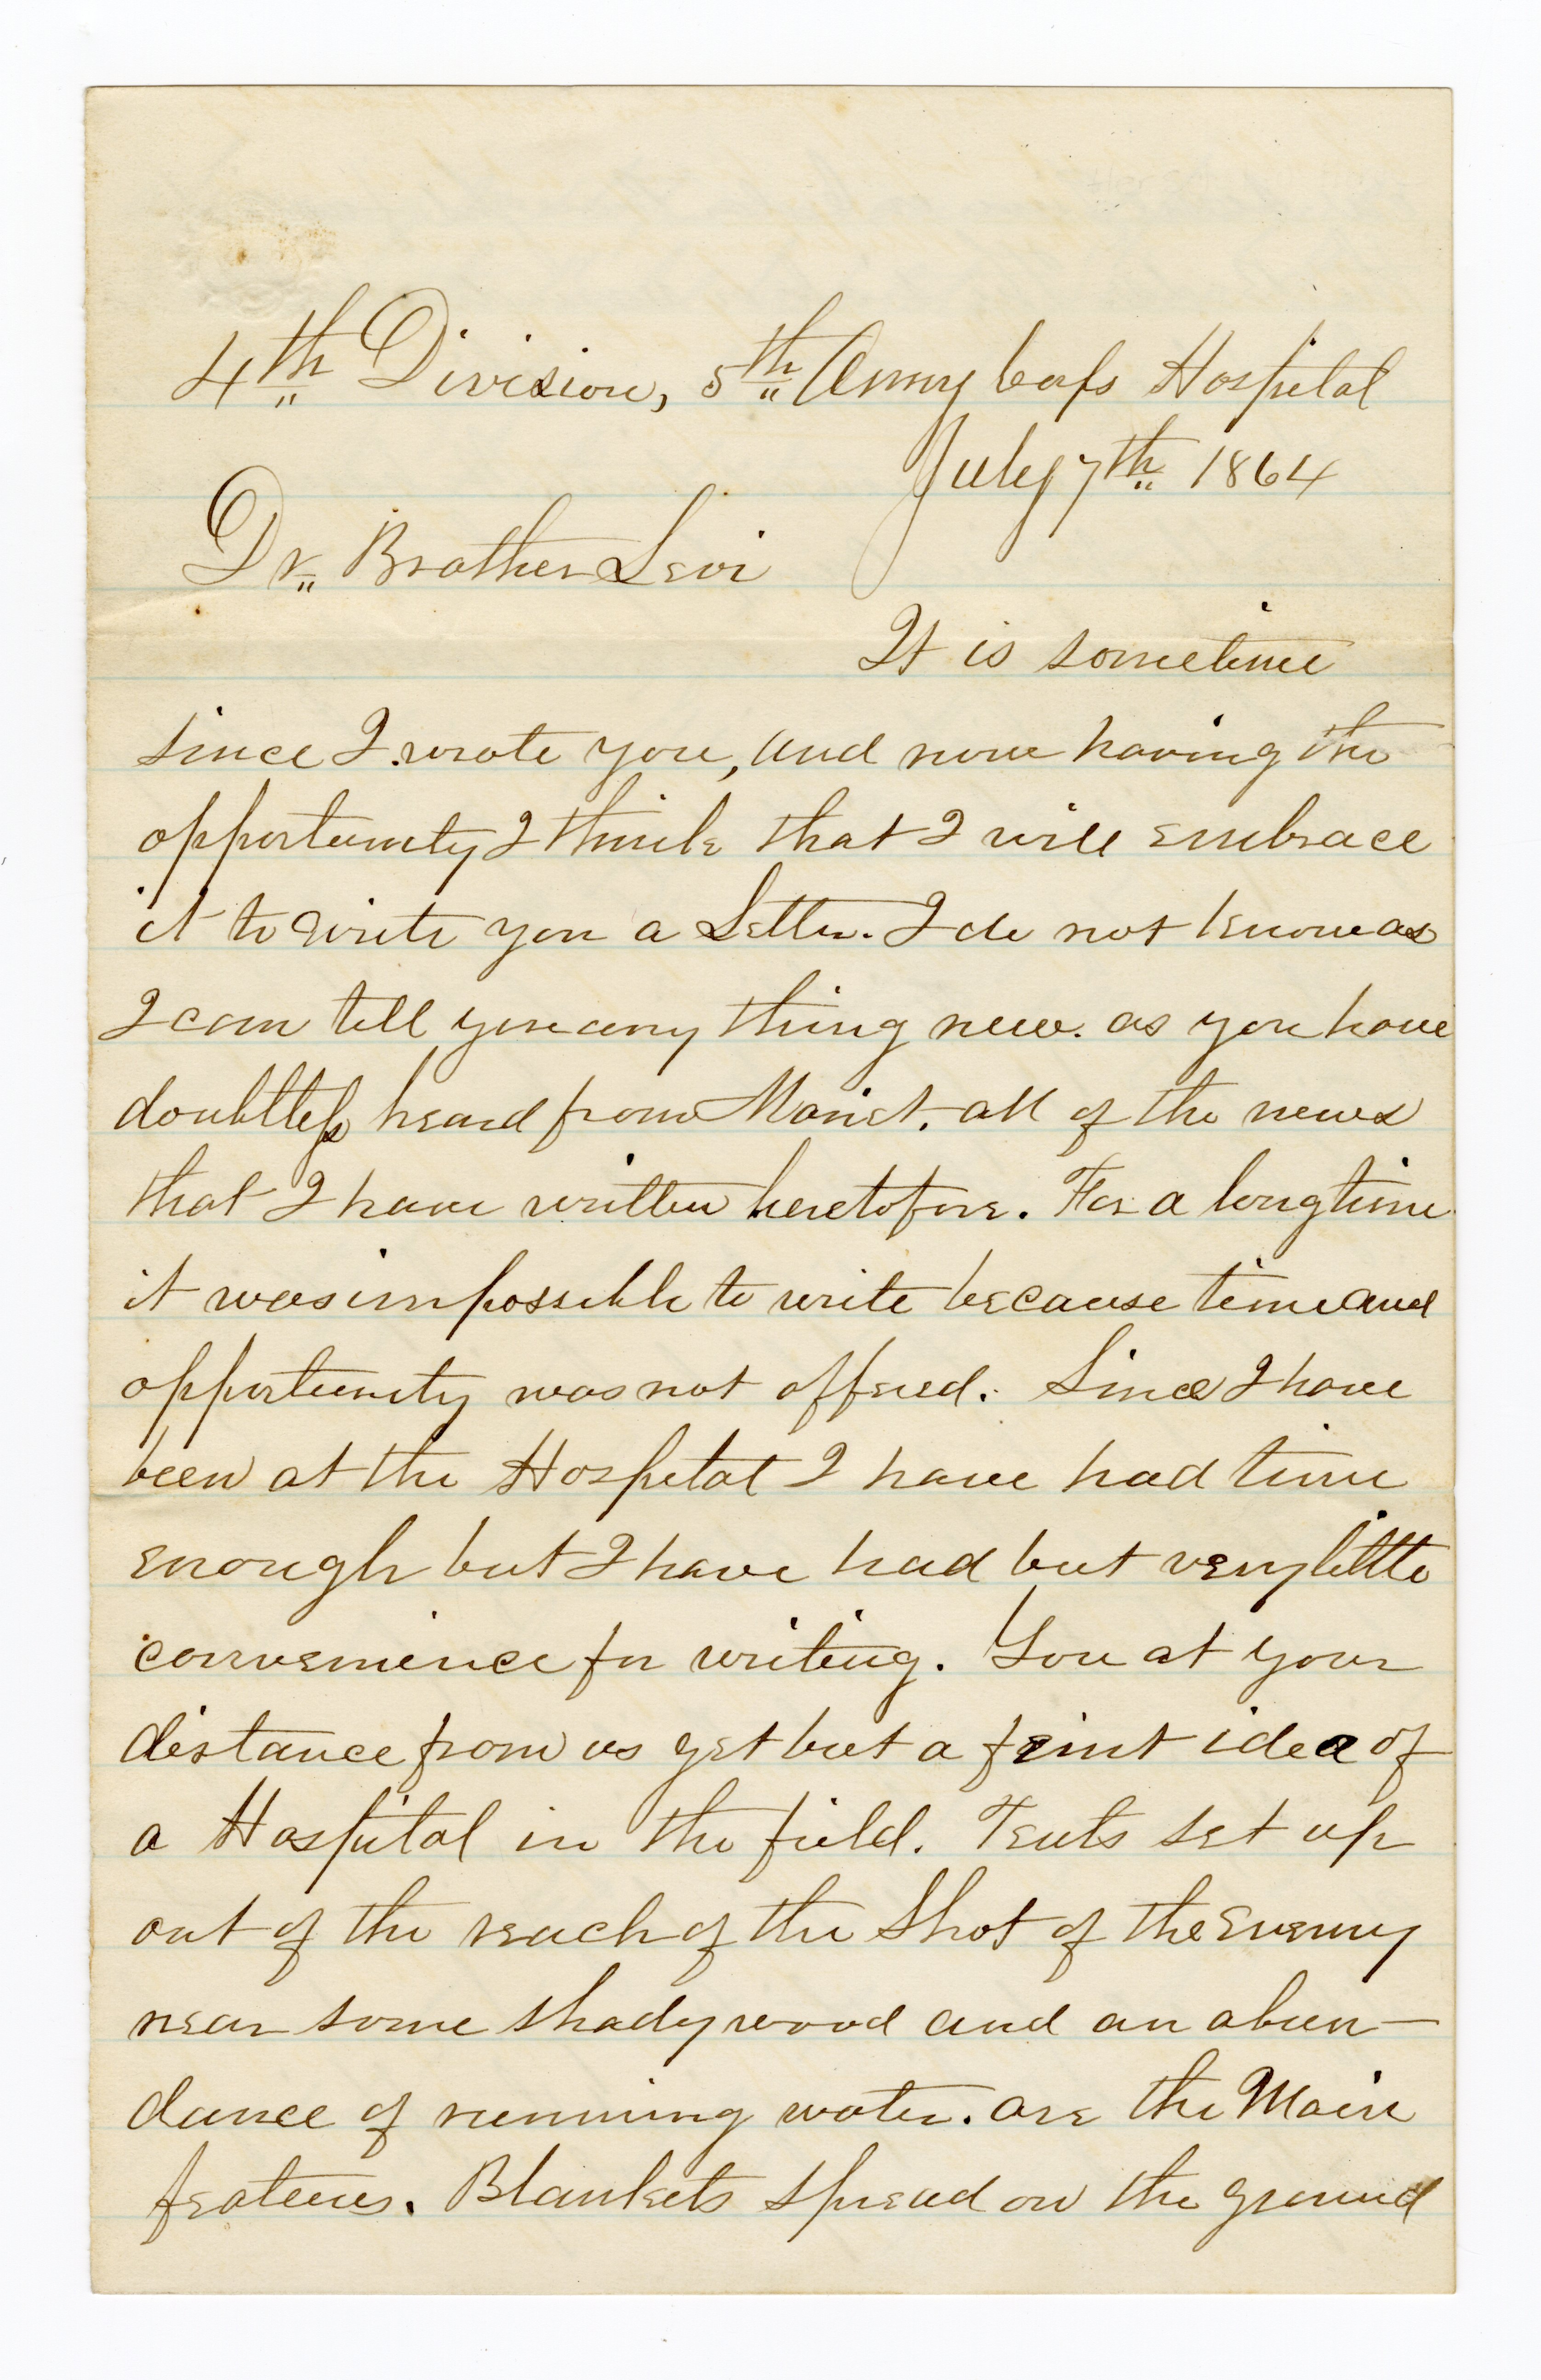 4th Division, 5th Army Corps Hospital
July 7th 1864
Dr. Brother Levi
It is sometime
since I wrote you, and now having the
opportunity I think that I will embrace
it to write you a Letter. I do not know as
I can tell you any thing new. as you have
doubtless heard from all of the news
that I have written heretofore. For a long time
it was impossible to write because time and
opportunity was not offered. Since I have
been at the Hospital I have had time
enough but I have had but very little
convenience for writing. You at your
distance from us get but a feint idea of
a Hospital in the field. Tents set up
out of the reach of the Shot of the Enemy
near some shady wood and an abun-
dance of running water. are the Main
features. Blankets spread on the ground